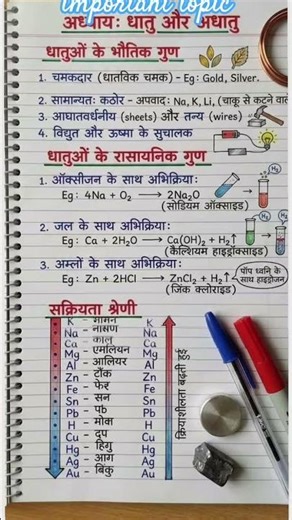 important topic
अध्यायः धातु और अधातु
धातुओं के भौतिक गुण
1. चमकदार (धातविक चमक) - Eg: Gold, Silver.
2. सामान्यतः कठोर - अपवाद: Na, K, Li, (चाकू से कटने वाले
3. आघातवर्धनीय (sheets) और तन्य (wires)
4. विद्युत और ऊष्मा के सुचालक
धातुओं के रासायनिक गुण
1. ऑक्सीजन के साथ अभिक्रिया:
Eg: 4Na + O₂ → 2Na₂O
(सोडियम ऑक्साइड)
H₂
2. जल के साथ अभिक्रिया:
Eg: Ca + 2H₂O → Ca(OH)₂ + H₂↑
(कैल्शियम हाइड्रॉक्साइड)
3. अम्लों के साथ अभिक्रिया:
Eg: Zn + 2HCl → ZnCl₂ + H₂↑
(जिंक क्लोराइड)
पॉप ध्वनि के
साथ हाइड्रोजन
H₂
सक्रियता श्रेणी
K - K
Na - Na
Ca - कालू Ca
Mg - एमलियन Mg
Al - आलियर Al
Zn - टौंक Zn
Fe - फेर Fe
Sn - सन Sn
Pb - Pb
H - मोक H
Cu - Cu
Hg - हिगु Hg
Ag - आग Ag
Au - बिंकु Au
क्रियाशीलता बढ़ती हुई